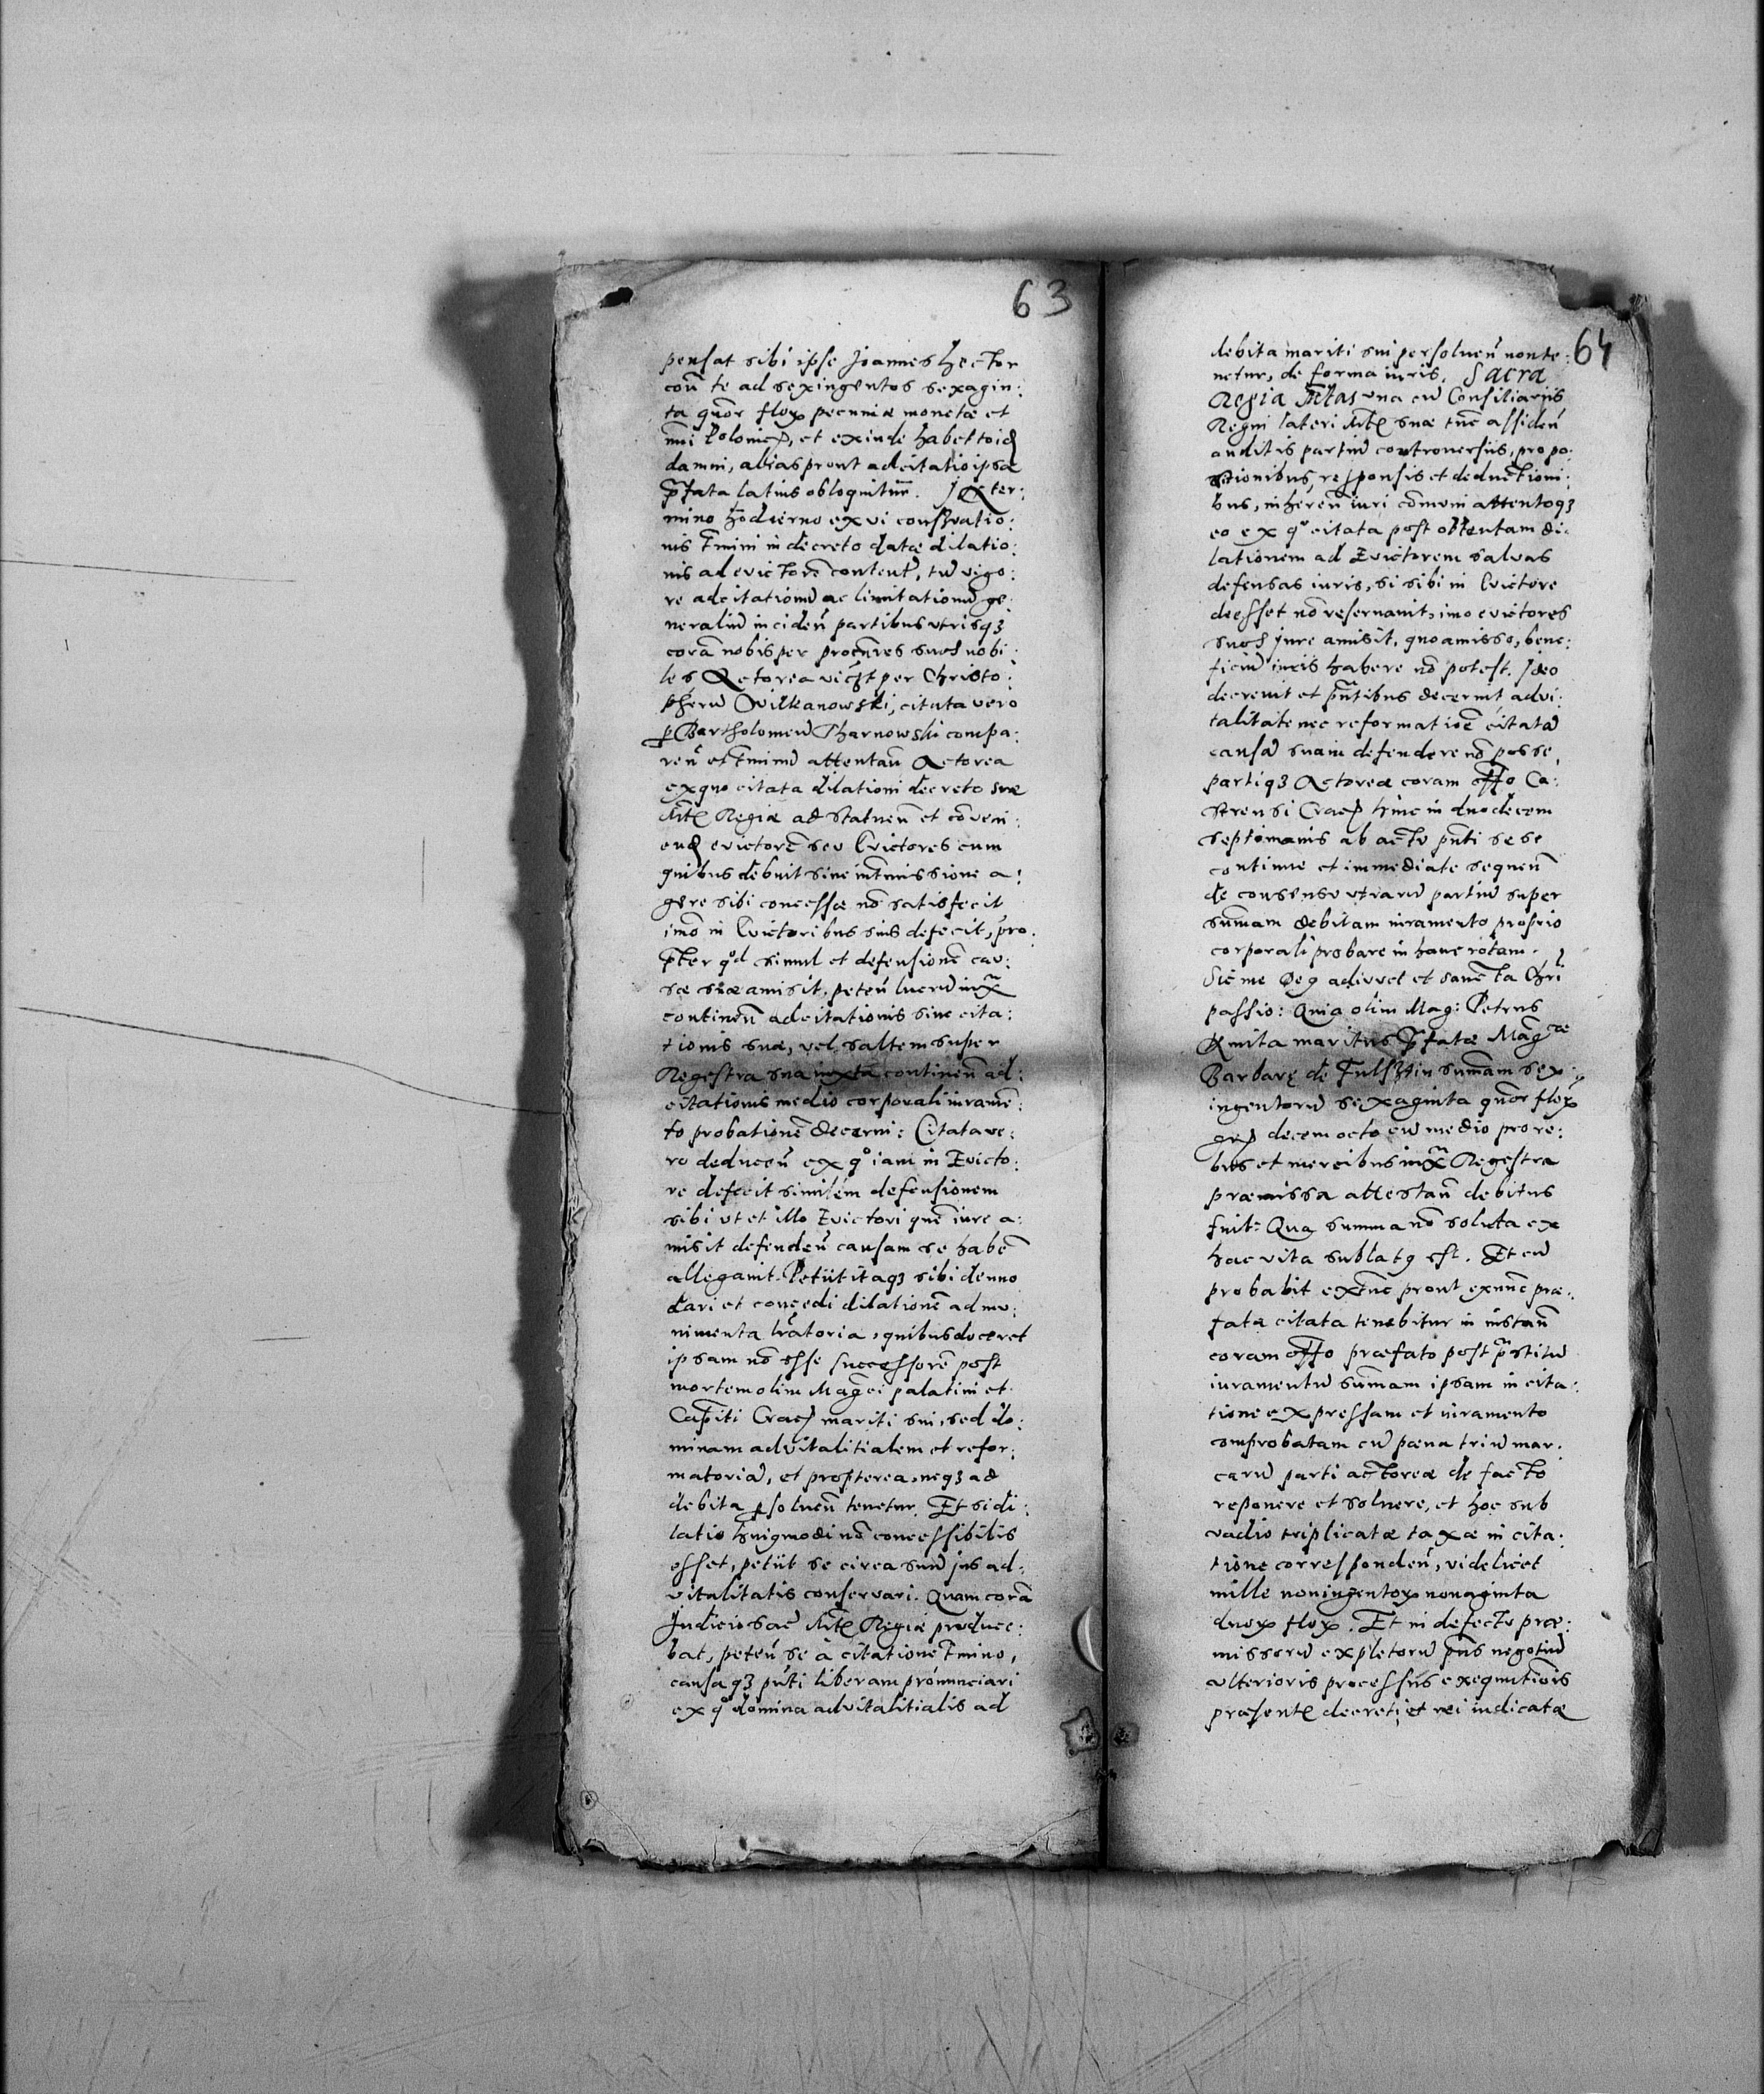 63
pensat sibi ipse Joannes Hector
coñ te ad sexingentos sexagin:
ta quõr floꝝ pecuniæ monetæ et
nūi Polonicꝶ, et exinde habet toid
damni, alias prout adcitatio ipsa
p̄fata latius obloquitur. In ter:
mino hodierno ex vi conservatio:
nis t̄mini in decreto datæ dilatio:
nis ad evictorē content, tū vigo:
re adcitationū ac limitationū ge:
neraliū inciden̄ partibus utrisqꝫ
corā nobis per procūres suos nobi:
les Actorea vīcꝫt per Christo:
pherū Wilkanowski, citata vero
ꝑ Bartholomeū Tharnowski compa:
ren̄ et t̄minū attentan̄ Actorea
ex quo citata dilationi decreto suæ
Mtis Regiæ ad statuen̄ et cōveni:
end evictorē seu Evictores cum
quibus debuit sine int̄missione a:
gere sibi concessæ nō satisfecit
imō in Evictoribus suis defecit, pro:
p̄ter qd simul et defensionē cau:
sæ suæ amisit, peten̄ lucrū iux̄
continen̄ adcitationis sive cita:
tionis suæ, vel saltem super
Regestra sua iuxta continen̄ ad:
citationis medio corporali iuramē:
to probationē decerni: Citata ve:
ro deducen̄ ex qº iam in Evicto:
re defecit similem defensionem
sibi ut et illo Evictori quē iure a:
misit defenden̄ causam se habē
allegavit. Petiit itaqꝫ sibi denuo
dari et concedi dilationē ad mu:
nimenta lr̄atoria, quibus doceret
ipsam nō esse successorē post
mortem olim Mag̃ci palatini et
Capiti Cracꝶ mariti sui, sed do:
minam advitalitialem et refor:
matoriā, et propterea, neqꝫ ad
debita ꝑsoluen̄ tenetur. Et si di:
latio huiqmodi nō concessibilis
esset, petiit se circa suū jus ad:
vitalitatis conservari. Quam corā
Judicio Sac Mtis Regiæ produce:
bat, peten̄ se à citatione t̄mino,
causaqꝫ pn̄ti liberam pronunciari
ex qº domina advitalitialis ad
64
debita mariti sui persoluen̄ non te:
netur, de forma iuris. Sacra
Regia Mtas una cū Consiliariis
Regni lateri Mtis suæ tūc assiden̄
auditis partiū controversiis, propo:
sitionibus, responsis et deductioni:
bus, inheren̄ iuri cōmuni attentoqꝫ
eo ex qº citata post obtentam di:
lationem ad Evictorem salvas
defensas iuris, si sibi in Evictore
deesset nō reservavit, imo evictores
suos jure amisit, quo amisso, bene:
ficiū iuris habere nō potest. Ideo
decrevit et pn̄tibus decernit advi:
talitate nec reformatiōe citatā
causā suam defendere nō posse,
partiqꝫ Actoreæ coram offo Ca:
strensi Cracꝶ hinc in duodecem
septimanis ab actu pn̄ti sese
continue et immediate sequen̄
de consensu utrarū partiū super
sum̄am debitam iuramento proprio
corporali probare in hanc rotam.
Sic me Deq adiuvet et sancta Chri
passio: Quia olim Mag: Petrus
Kmita maritus p̄fatæ Mag̃cæ
Barbarę de Fulsztin sum̄am sex:
ingentorū sexaginta quõr floꝝ
grꝶ decem octo cū medio pro re:
bus et mercibus iux̄ Regestra
præmissa attestan̄ debitus
fuit: Qua summa nō soluta ex
hac vita sublatq est. Et cū
probabit ex tūc prout ex nūc præ:
fata citata tenebitur in instan̄
coram offo præfato post p̄stitū
iuramentū sum̄am ipsam in cita:
tione expressam et iuramento
comprobatam cū pæna triū mar:
carū parti actoreæ de facto
reponere et soluere, et hoc sub
vadio triplicatæ taxæ in cita:
tione corresponden̄, videlicet
mille noningentoꝝ nonaginta
duoꝝ floꝝ. Et in defectu præ:
missorū expletorū pn̄s negotiū
ulterioris processus exequutiōis
præsentis decreti et rei iudicatæ